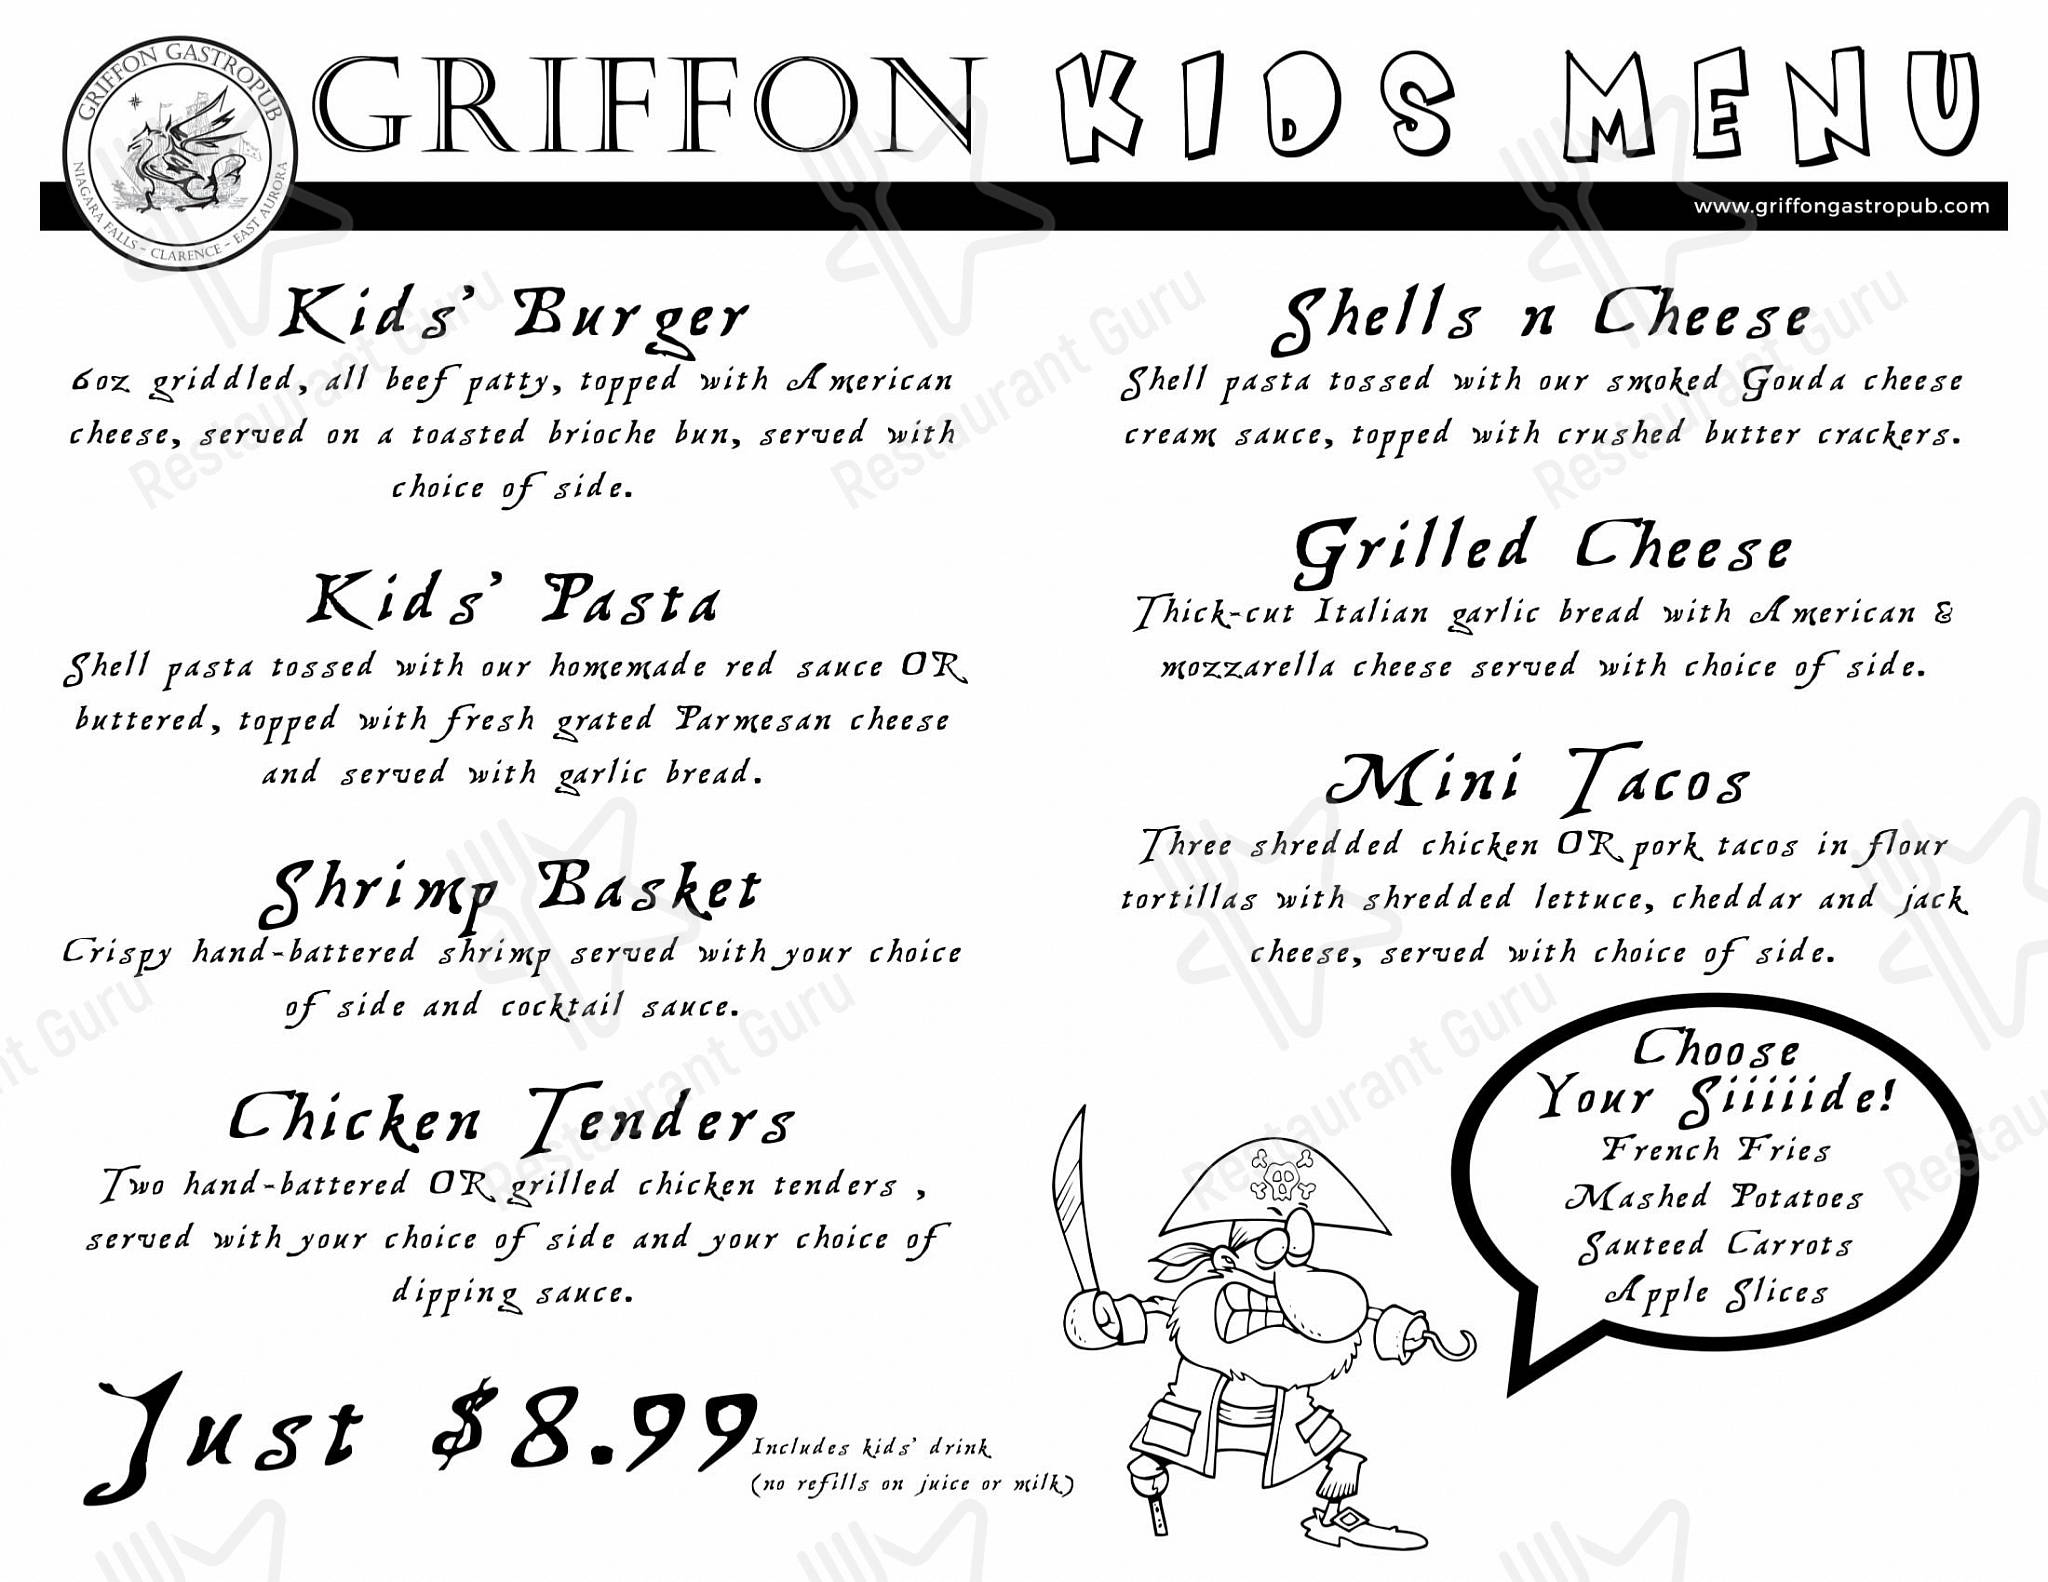 GRIFFON GASTROPUB
NIAGARA FALLS - CLARENCE - EAST AURORA
GRIFFON KIDS MENU
www.griffongastropub.com
Kids' Burger
6oz griddled, all beef patty, topped with American
cheese, served on a toasted brioche bun, served with
choice of side.
Kids' Pasta
Shell pasta tossed with our homemade red sauce OR
buttered, topped with fresh grated Parmesan cheese
and served with garlic bread.
Shrimp Basket
Crispy hand-battered shrimp served with your choice
of side and cocktail sauce.
Chicken Tenders
Two hand-battered OR grilled chicken tenders ,
served with your choice of side and your choice of
dipping sauce.
Just $8.99
Includes kids' drink
(no refills on juice or milk)
Shells n Cheese
Shell pasta tossed with our smoked Gouda cheese
cream sauce, topped with crushed butter crackers.
Grilled Cheese
Thick-cut Italian garlic bread with American &
mozzarella cheese served with choice of side.
Mini Tacos
Three shredded chicken OR pork tacos in flour
tortillas with shredded lettuce, cheddar and jack
cheese, served with choice of side.
Choose
Your Siiiiide!
French Fries
Mashed Potatoes
Sauteed Carrots
Apple Slices
Restaurant Guru
Restaurant Guru
Restaurant Guru
Restaurant Guru
Restaurant Guru